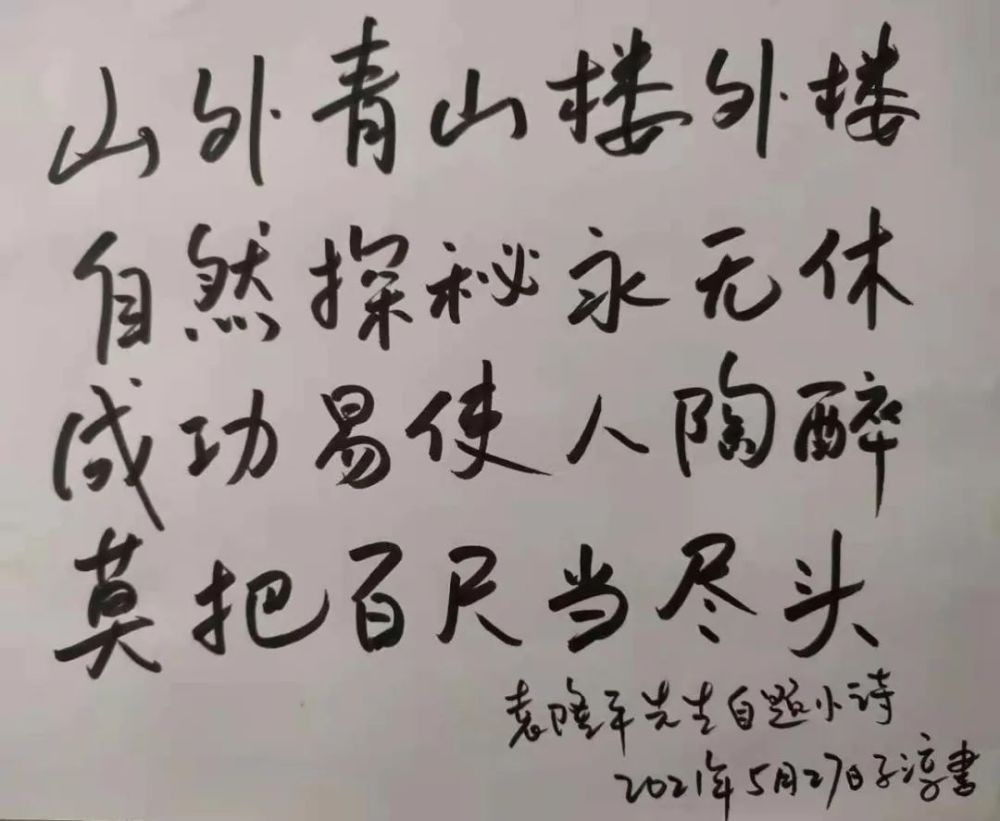 山外青山楼外楼
自然探秘永无休
成功易使人陶醉
莫把百尺当尽头
袁隆平先生自题小诗
2021年5月27日子淳书